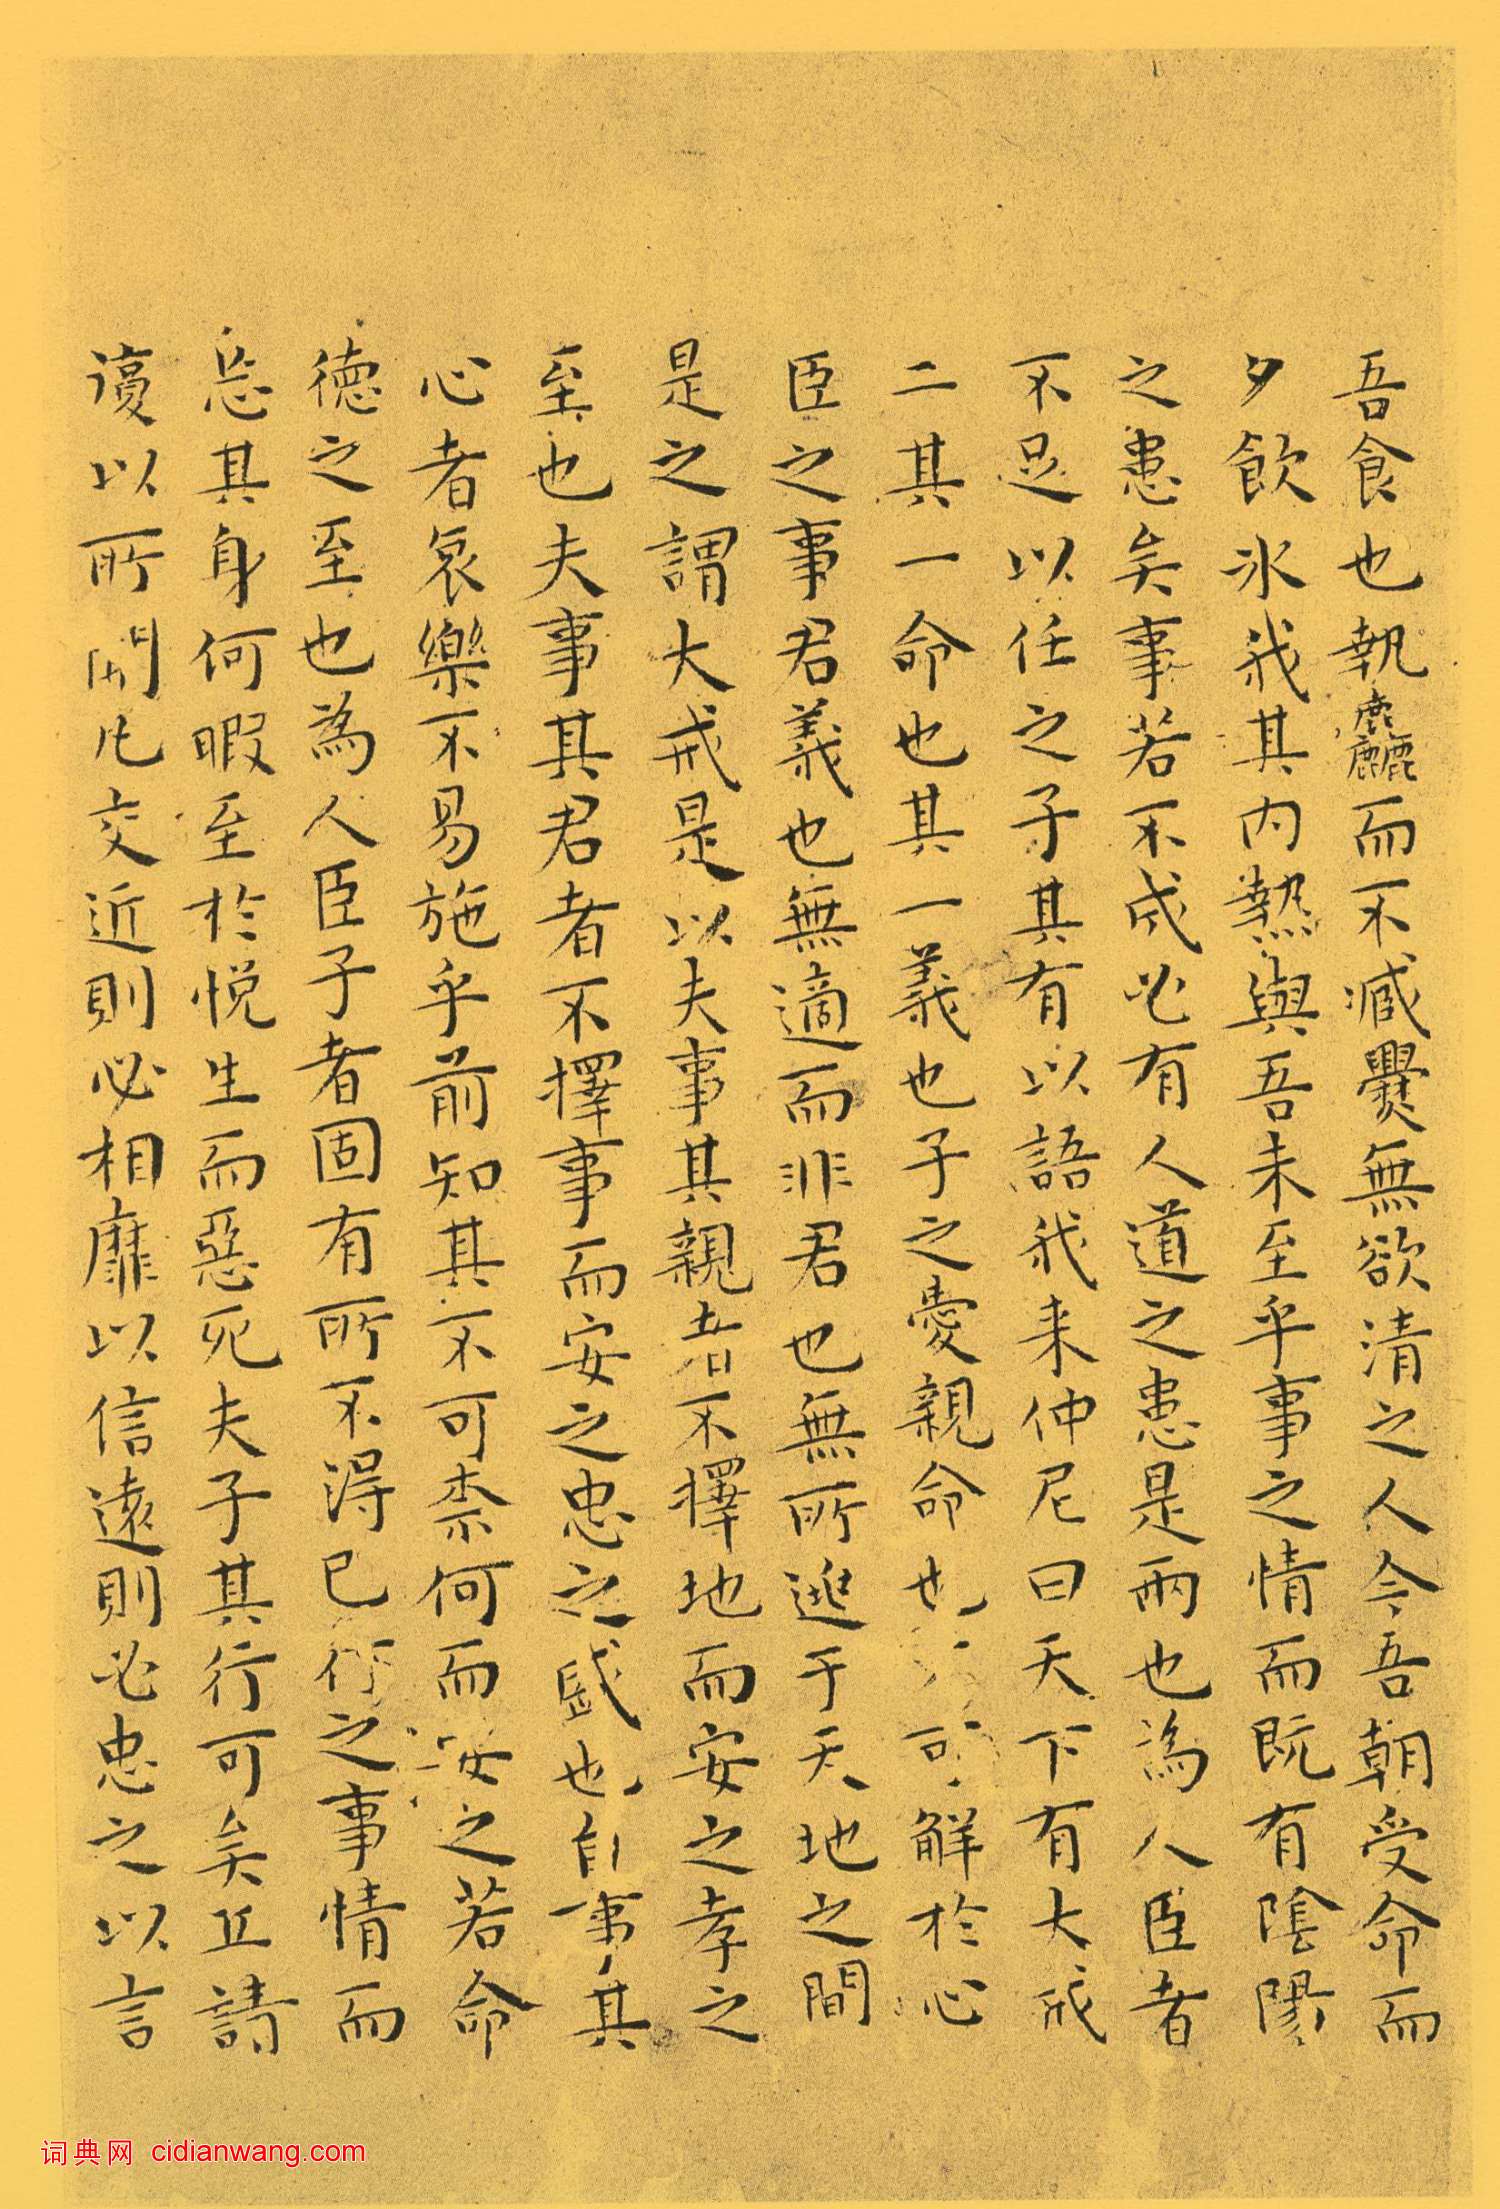 吾食也執麤而不臧爨無欲清之人今吾朝受命而
夕飲冰我其內熱與吾未至乎事之情而既有陰陽
之患矣事若不成必有人道之患是兩也為人臣者
不足以任之子其有以語我来仲尼曰天下有大戒
二其一命也其一義也子之愛親命也可解於心
臣之事君義也無適而非君也無所逃于天地之間
是之謂大戒是以夫事其親者不擇地而安之孝之
至也夫事其君者不擇事而安之忠之盛也自事其
心者哀樂不易施乎前知其不可柰何而安之若命
德之至也為人臣子者固有所不得已行之事情而
忘其身何暇至於悦生而惡死夫子其行可矣丘請
以所聞凡交近則必相靡以信遠則必忠之以言
词典网 cidianwang.com